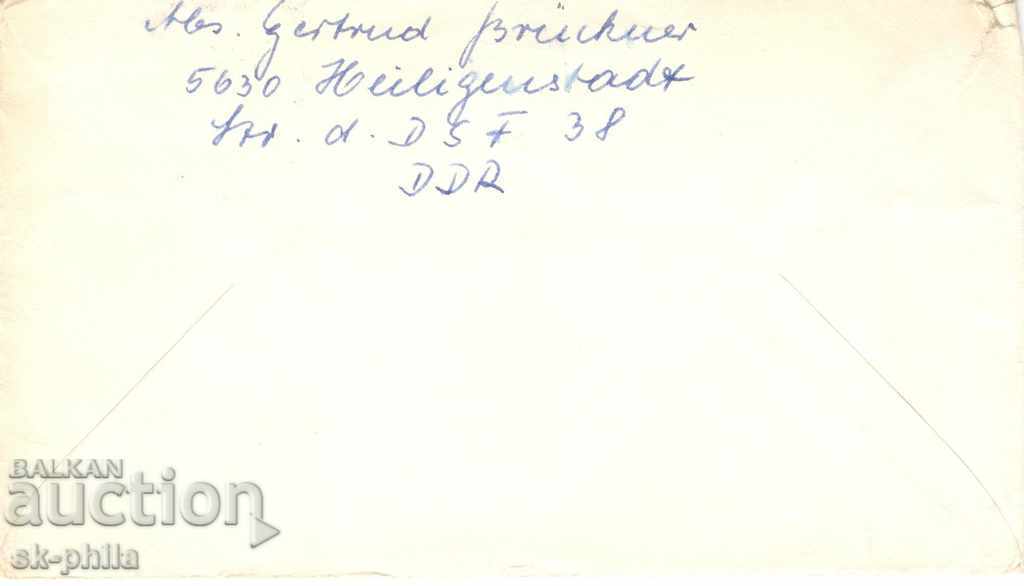 Abs. Gertrud Brückner
5630 Heiligenstadt
Str. d. DSF 38
DDR
BALKAN
auction
sk-philla